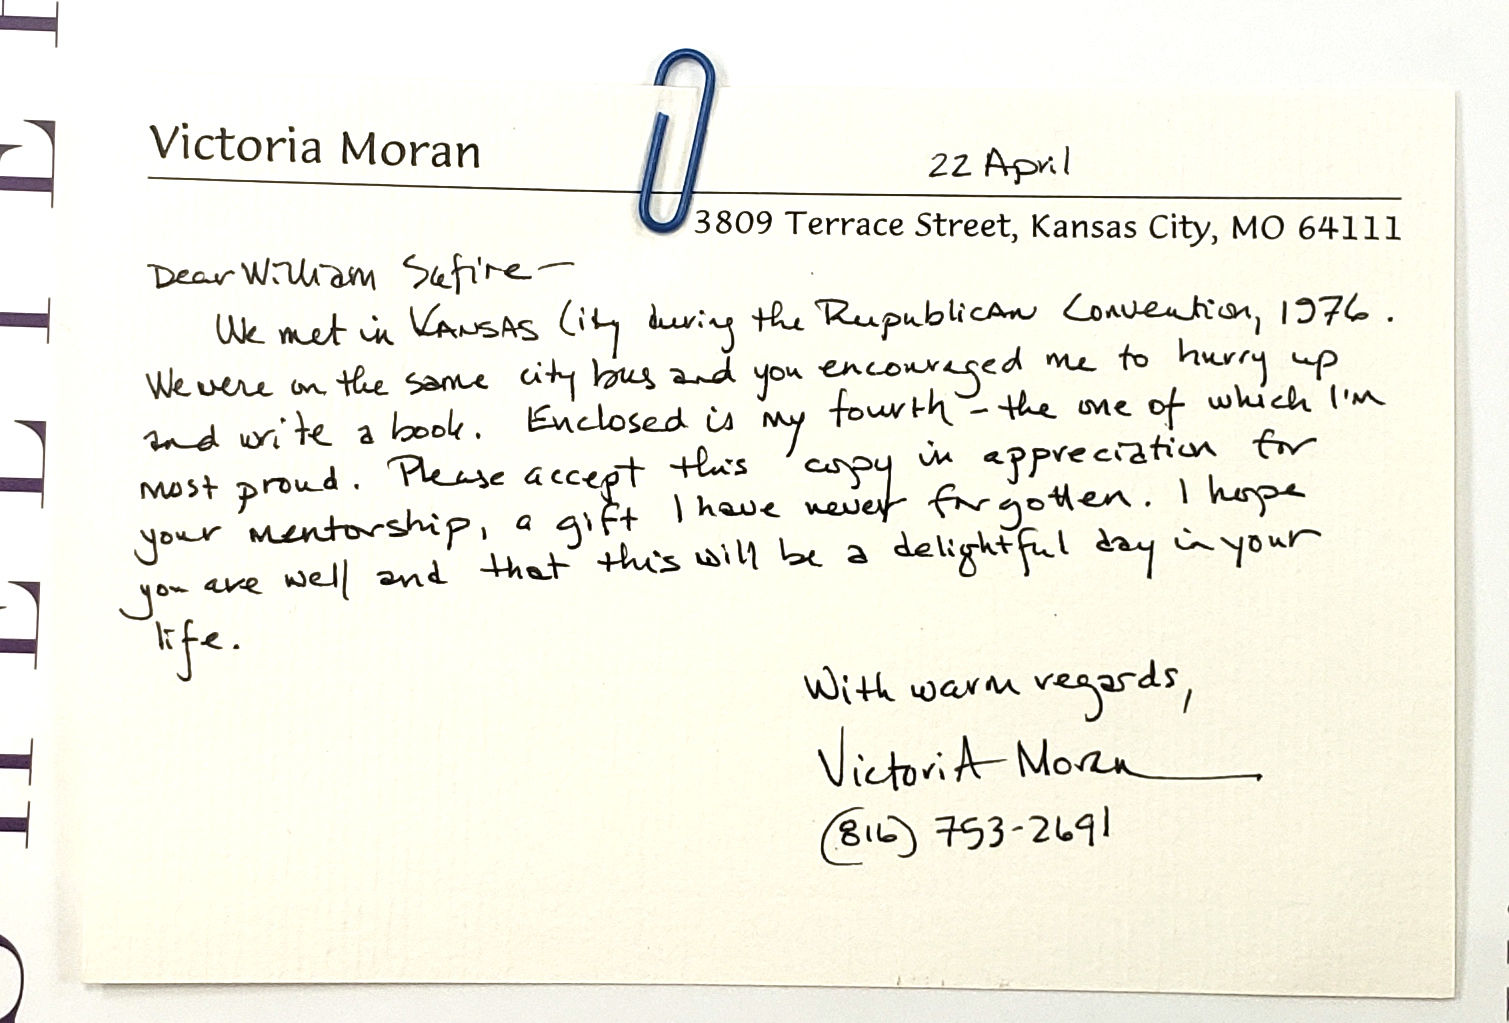 Victoria Moran
22 April
3809 Terrace Street, Kansas City, MO 64111
Dear William Safire—
We met in Kansas City during the Republican Convention, 1976.
We were on the same city bus and you encouraged me to hurry up
and write a book. Enclosed is my fourth – the one of which I'm
most proud. Please accept this copy in appreciation for
your mentorship, a gift I have never forgotten. I hope
you are well and that this will be a delightful day in your
life.
With warm regards,
Victoria Moran
(816) 753-2691